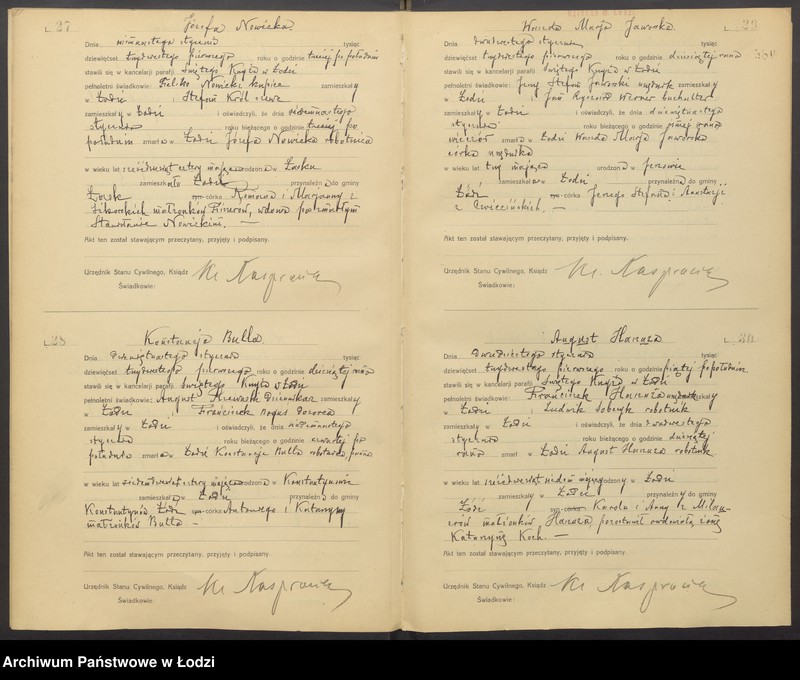 L. 27
Józefa Nowicka.
Dnia osiemnastego stycznia tysiąc
dziewięćset trzydziestego pierwszego roku o godzinie trzeciej po południu
stawili się w kancelarji parafji Świętego Krzyża w Łodzi
pełnoletni świadkowie: Feliks Nowicki kupiec zamieszkały
w Łodzi i Stefan Król
zamieszkały w Łodzi i oświadczyli, że dnia siedemnastego
stycznia roku bieżącego o godzinie trzeciej po
południu zmarła w Łodzi Józefa Nowicka robotnica
w wieku lat sześćdziesiąt cztery mająca urodzona w Łasku
zamieszkała w Łodzi przynależna do gminy
Łask córka Romana i Marjanny z
Sikorskich małżonków, wdowa po zmarłym
Stanisławie Nowickim. —
Akt ten został stawającym przeczytany, przyjęty i podpisany.
Urzędnik Stanu Cywilnego, Ksiądz
Świadkowie:
L. 28
Konstancja Bulla
Dnia dziewiętnastego stycznia tysiąc
dziewięćset trzydziestego pierwszego roku o godzinie dziesiątej rano
stawili się w kancelarji parafji Świętego Krzyża w Łodzi
pełnoletni świadkowie: August zamieszkały
w Łodzi i Franciszek dozorca
zamieszkały w Łodzi i oświadczyli, że dnia osiemnastego
stycznia roku bieżącego o godzinie czwartej po
południu zmarła w Łodzi Konstancja Bulla robotnica, panna
w wieku lat siedemdziesiąt cztery mająca urodzona w Konstantynowie
zamieszkała w Łodzi przynależna do gminy
Konstantynów, Łódź córka Antoniego i Katarzyny
małżonków Bulla —
Akt ten został stawającym przeczytany, przyjęty i podpisany.
Urzędnik Stanu Cywilnego, Ksiądz
Świadkowie:
L. 29
Wanda Marja Jaworska.
Dnia dwudziestego stycznia tysiąc
dziewięćset trzydziestego pierwszego roku o godzinie dziesiątej rano
stawili się w kancelarji parafji Świętego Krzyża w Łodzi
pełnoletni świadkowie: Jerzy Stefan Jaworski urzędnik zamieszkały
w Łodzi i Jan Ryszard Werner buchalter
zamieszkały w Łodzi i oświadczyli, że dnia dziewiętnastego
stycznia roku bieżącego o godzinie
wieczór zmarła w Łodzi Wanda Marja Jaworska
córka urzędnika
w wieku lat trzy mająca urodzona w
zamieszkała w Łodzi przynależna do gminy
Łódź córka Jerzego Stefana i Anastazji
z Ćwiecińskich. —
Akt ten został stawającym przeczytany, przyjęty i podpisany.
Urzędnik Stanu Cywilnego, Ksiądz
Świadkowie:
L. 30
August Hausza
Dnia dwudziestego stycznia tysiąc
dziewięćset trzydziestego pierwszego roku o godzinie piątej po południu
stawili się w kancelarji parafji Świętego Krzyża w Łodzi
pełnoletni świadkowie: Franciszek Hausza zamieszkały
w Łodzi i Ludwik Sobczyk robotnik
zamieszkały w Łodzi i oświadczyli, że dnia dwudziestego
stycznia roku bieżącego o godzinie
rano zmarł w Łodzi August Hausza robotnik
w wieku lat sześćdziesiąt siedem mający urodzony w Łodzi
zamieszkały w Łodzi przynależny do gminy
Łódź syn Karola i Anny z
małżonków Hausza, pozostawił owdowiałą żonę
Katarzynę Koch. —
Akt ten został stawającym przeczytany, przyjęty i podpisany.
Urzędnik Stanu Cywilnego, Ksiądz
Świadkowie:
Archiwum Państwowe w Łodzi